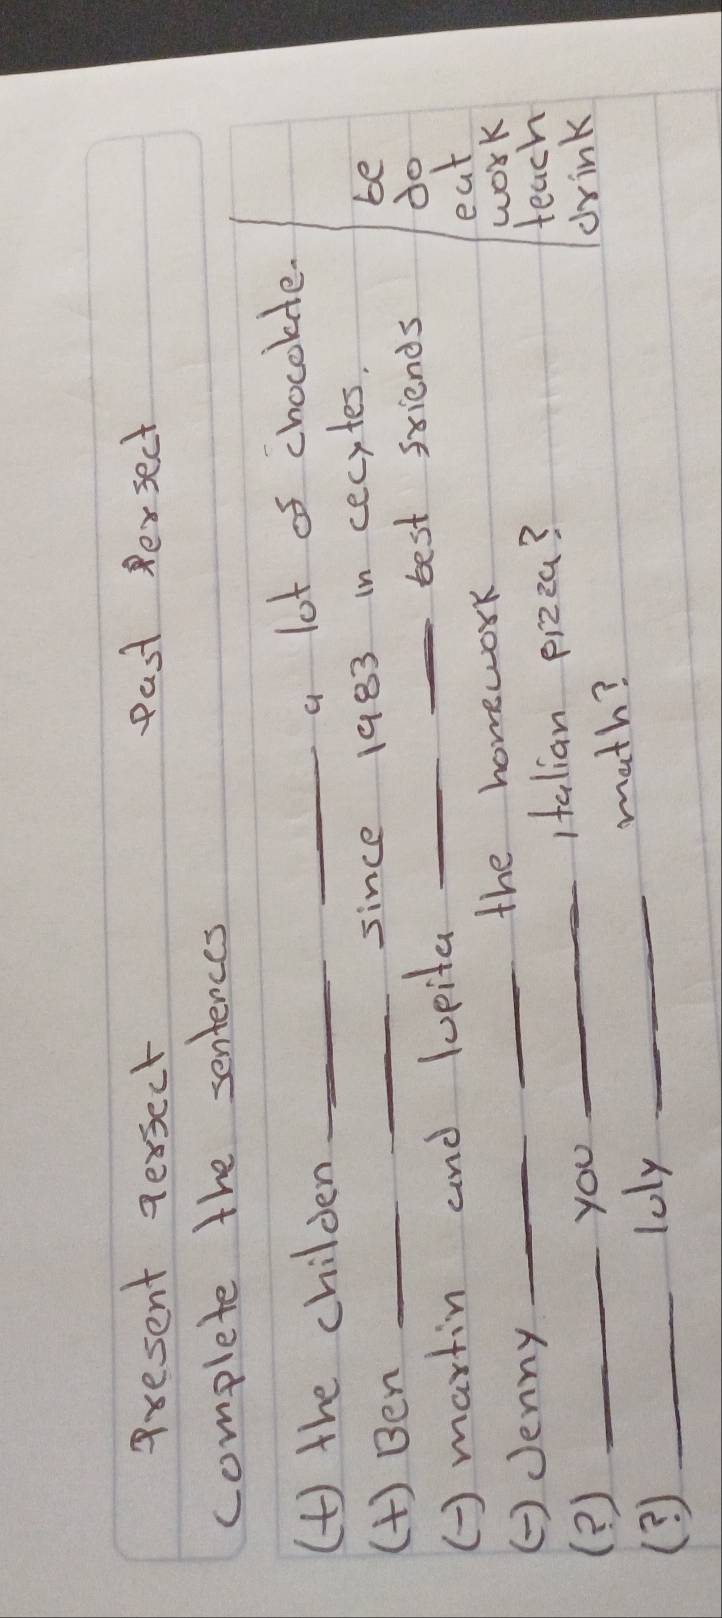 Present perfect Past Perfect
complete the sentences
(+) the childen ___ ___ a lot of chocolate.
(+) Ben ___ ___ since 1983 in cecytes.
(-) martin and lupita ___ ___ best friends
(-) Jenny ___ ___ the homework
(?) ___ you ___ Italian pizza?
(?) ___ luly ___ math?
be
do
eat
work
teach
drink